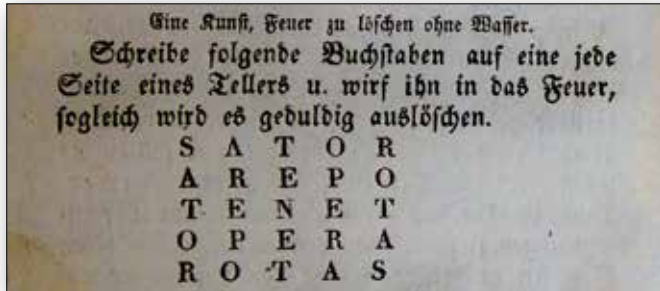 Eine Kunst, Feuer zu löschen ohne Wasser.
Schreibe folgende Buchstaben auf eine jede
Seite eines Tellers u. wirf ihn in das Feuer,
sogleich wird es geduldig auslöschen.
S A T O R
A R E P O
T E N E T
O P E R A
R O T A S